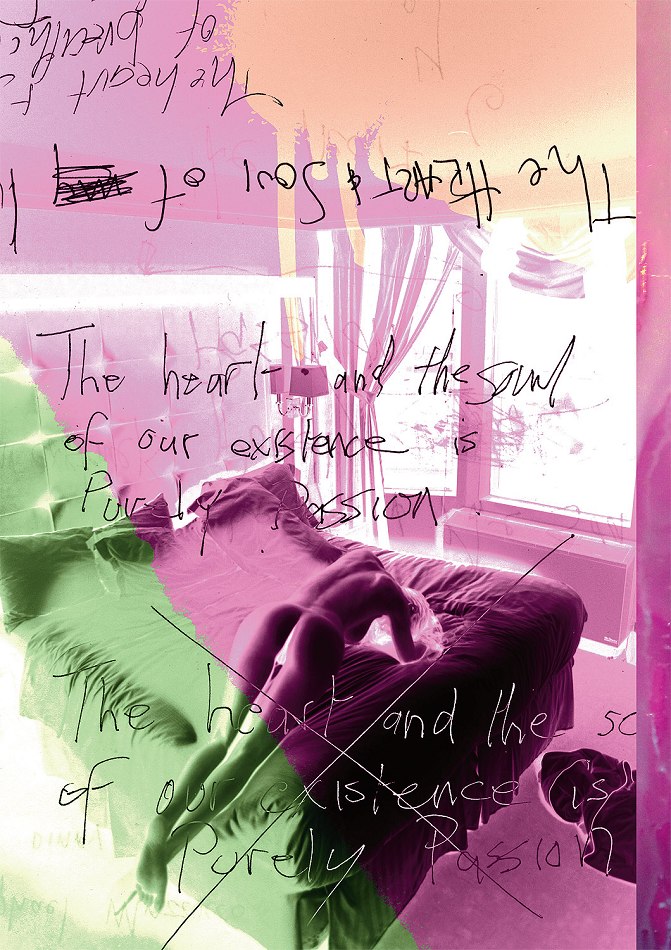 The HEART & Soul of
The heart
of
The heart and the soul
of our existence is
Purely Passion
The heart and the so
of our existence (is)
Purely Passion